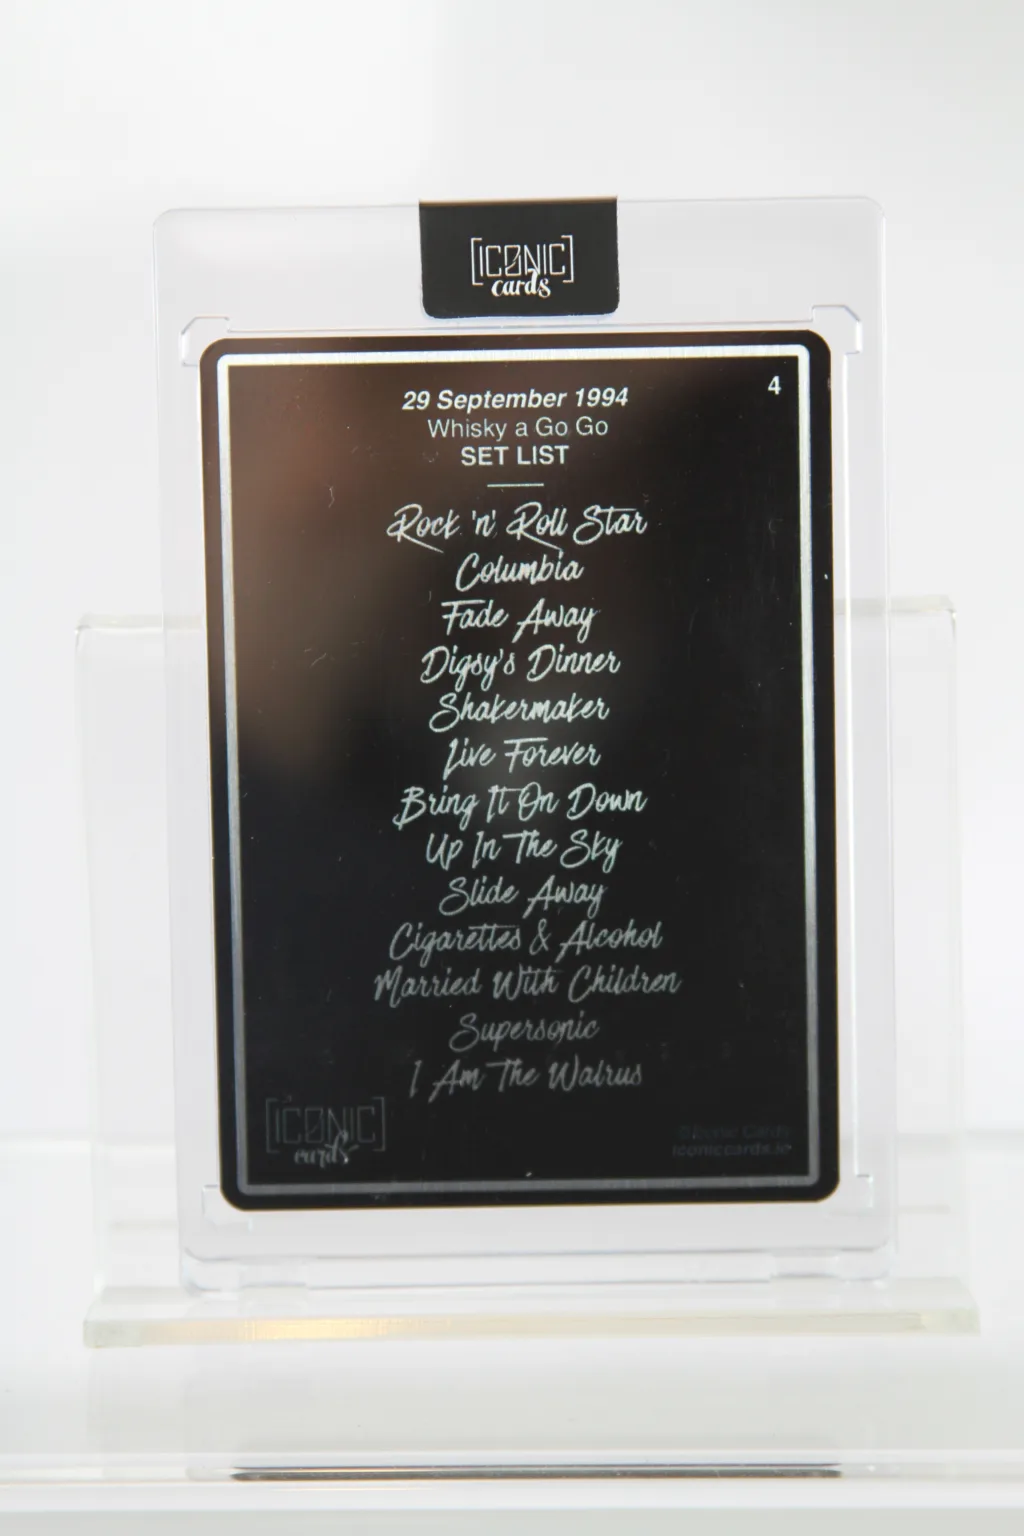 [ICONIC]
cards
4
29 September 1994
Whisky a Go Go
SET LIST
Rock 'n' Roll Star
Columbia
Fade Away
Digsy's Dinner
Shakermaker
Live Forever
Bring It On Down
Up In The Sky
Slide Away
Cigarettes & Alcohol
Married With Children
Supersonic
I Am The Walrus
[ICONIC]
cards
Iconic Cards
iconiccards.ie